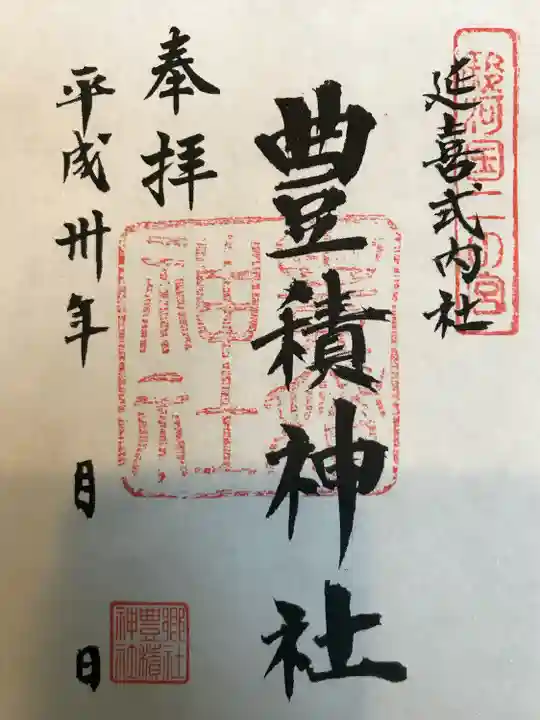 駿河国二の宮
延喜式内社
豊積神社
奉拝
平成卅年 月 日
豊積神社
郷社豊積神社